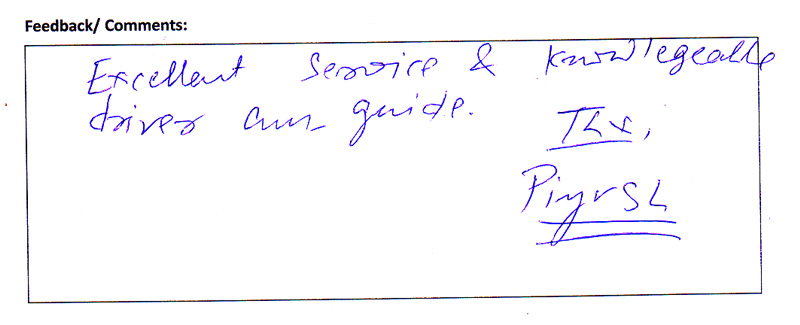 Feedback/ Comments:
Excellent Service & Knowlegeable
driver cum guide.
Thx,
Piyush